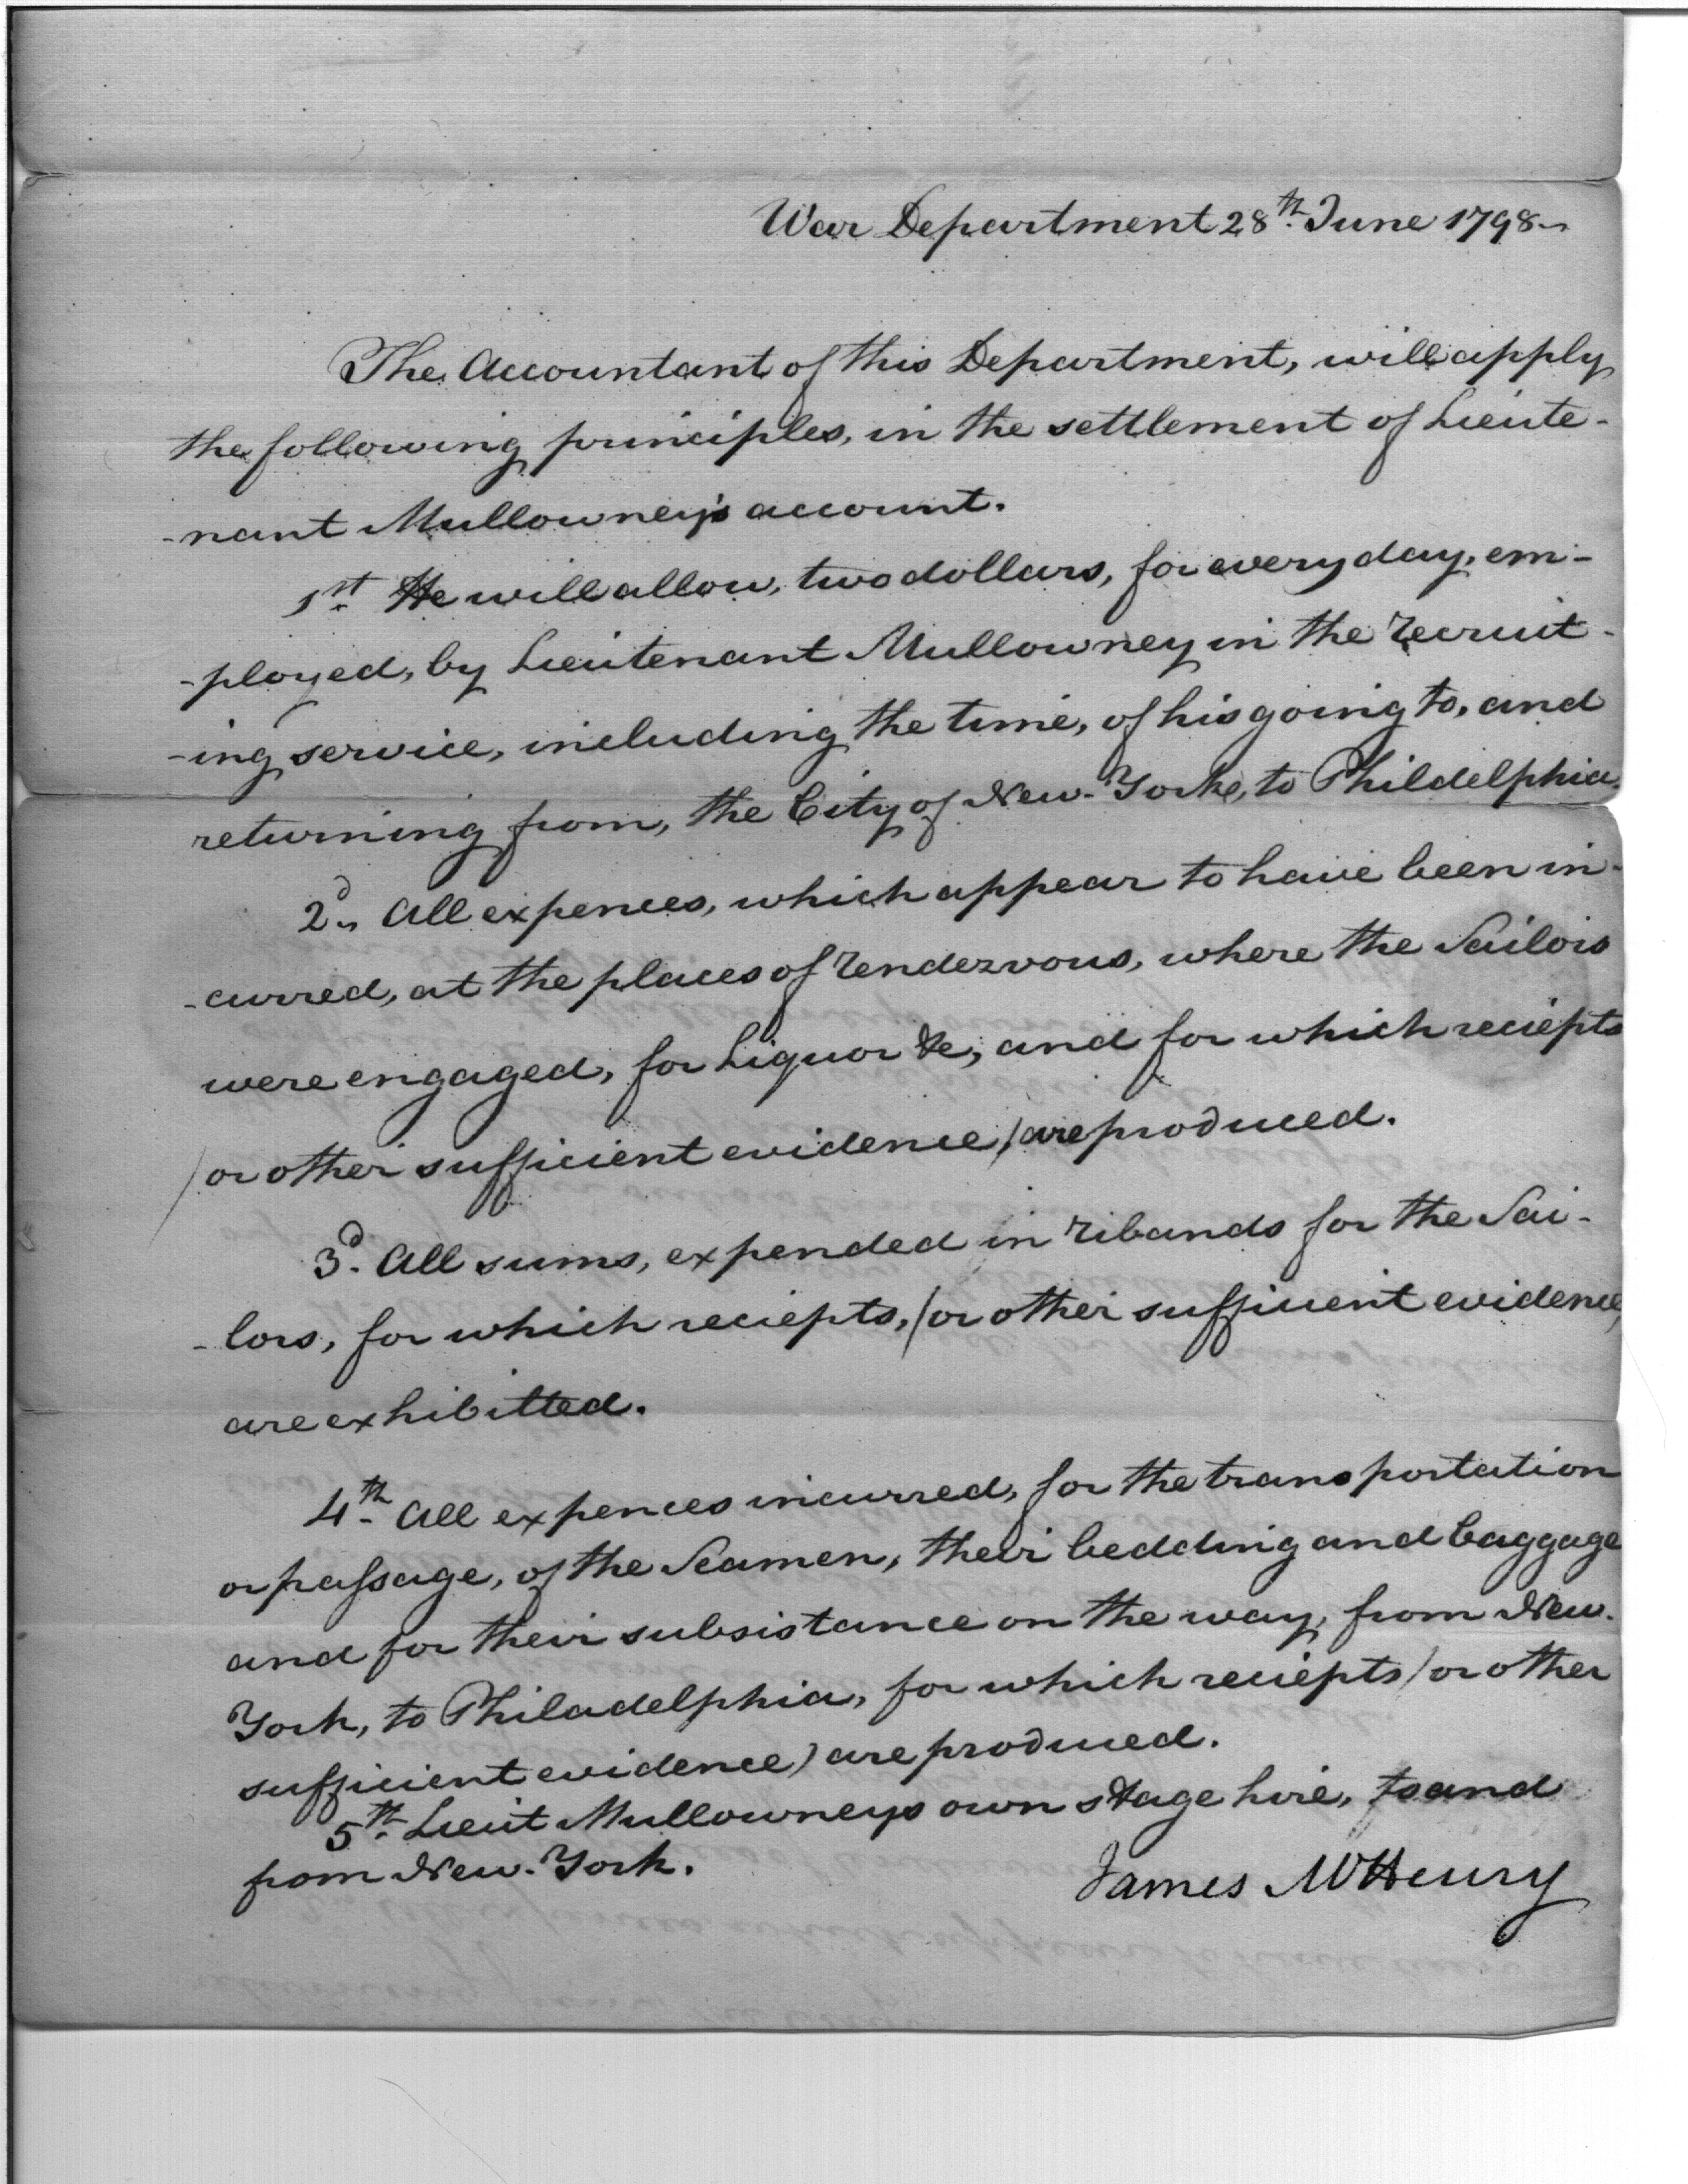 War Department 28th. June 1798
The Accountant of this Department, will apply
the following principles, in the settlement of Lieute-
-nant Mullowney's account.
1st. He will allow, two dollars, for every day, em-
-ployed, by Lieutenant Mullowney in the recruit-
-ing service, including the time, of his going to, and
returning from, the City of New-Yorke, to Phildelphia.
2d. All expences, which appear to have been in-
-curred, at the places of rendezvous, where the Sailors
were engaged, for Liquor &c, and for which reciepts
(or other sufficient evidence) are produced.
3d. All sums, expended in ribands for the Sai-
-lors, for which reciepts, (or other sufficient evidence)
are exhibitted.
4th. All expences incurred, for the transportation
or passage, of the Seamen, their bedding and baggage
and for their subsistance on the way, from New-
York, to Philadelphia, for which reciepts (or other
sufficient evidence) are produced.
5th. Lieut Mullowneys own stage hire, to and
from New-York.
James McHenry